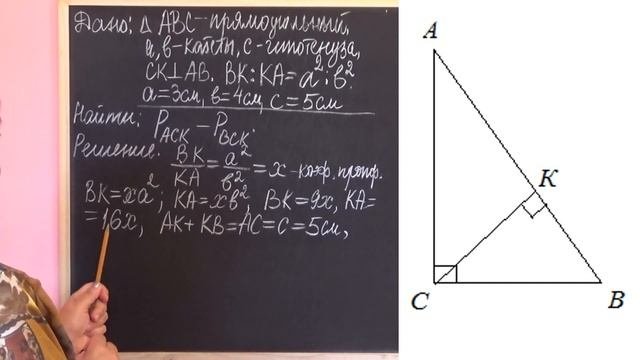 Дано: △ ABC - прямоугольный,
a, b - катеты, c - гипотенуза,
CK⊥AB. BK:KA=a²:b².
a=3см, b=4см, c=5см
Найти: P_ACK - P_BCK.
Решение. BK/KA = a²/b² = x - коэф. проп.
BK=xa²; KA=xb², BK=9x, KA=
=16x, AK+KB=AC=C=5см,
A
K
C
B